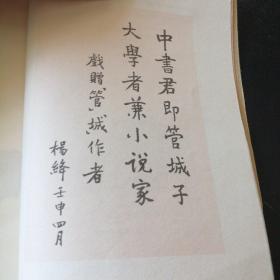 中書君即管城子
大學者兼小說家
戲贈《管城》作者
楊絳壬申四月